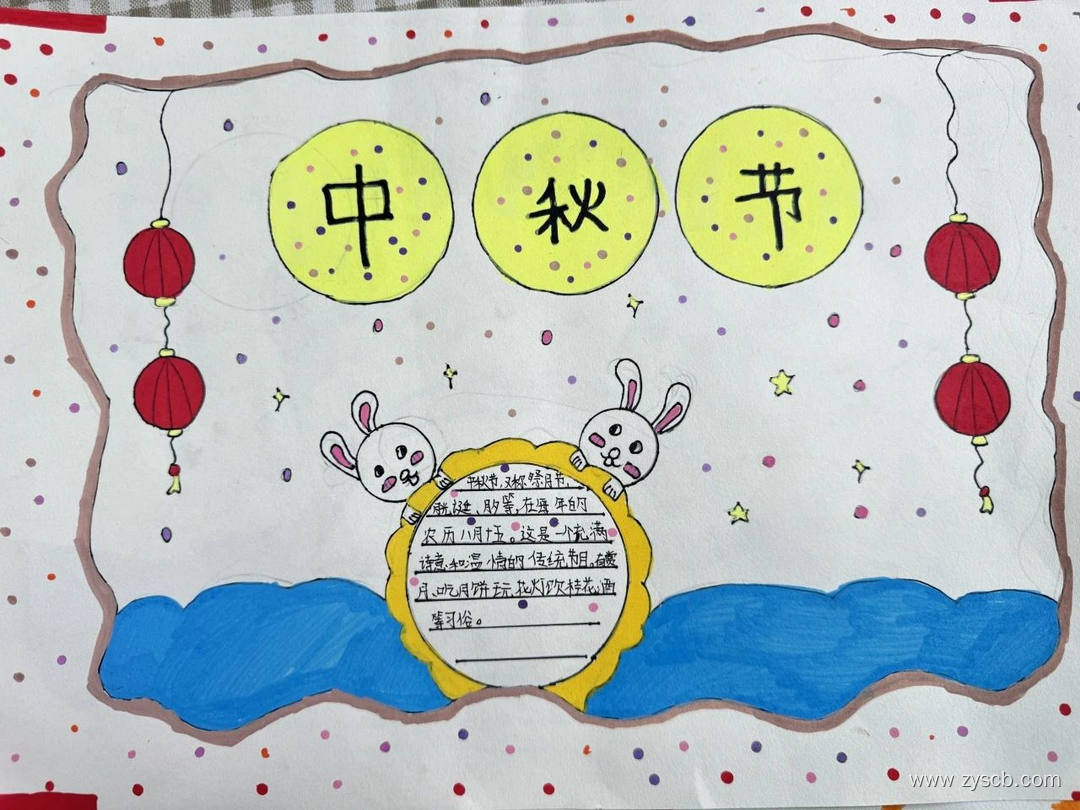 中 秋 节
中秋节,又称祭月节、
月夕等,在每年的
农历八月十五。这是一个充满
诗意和温情的传统节日。有赏
月、吃月饼玩花灯饮桂花酒
等习俗。
www.zyscb.com